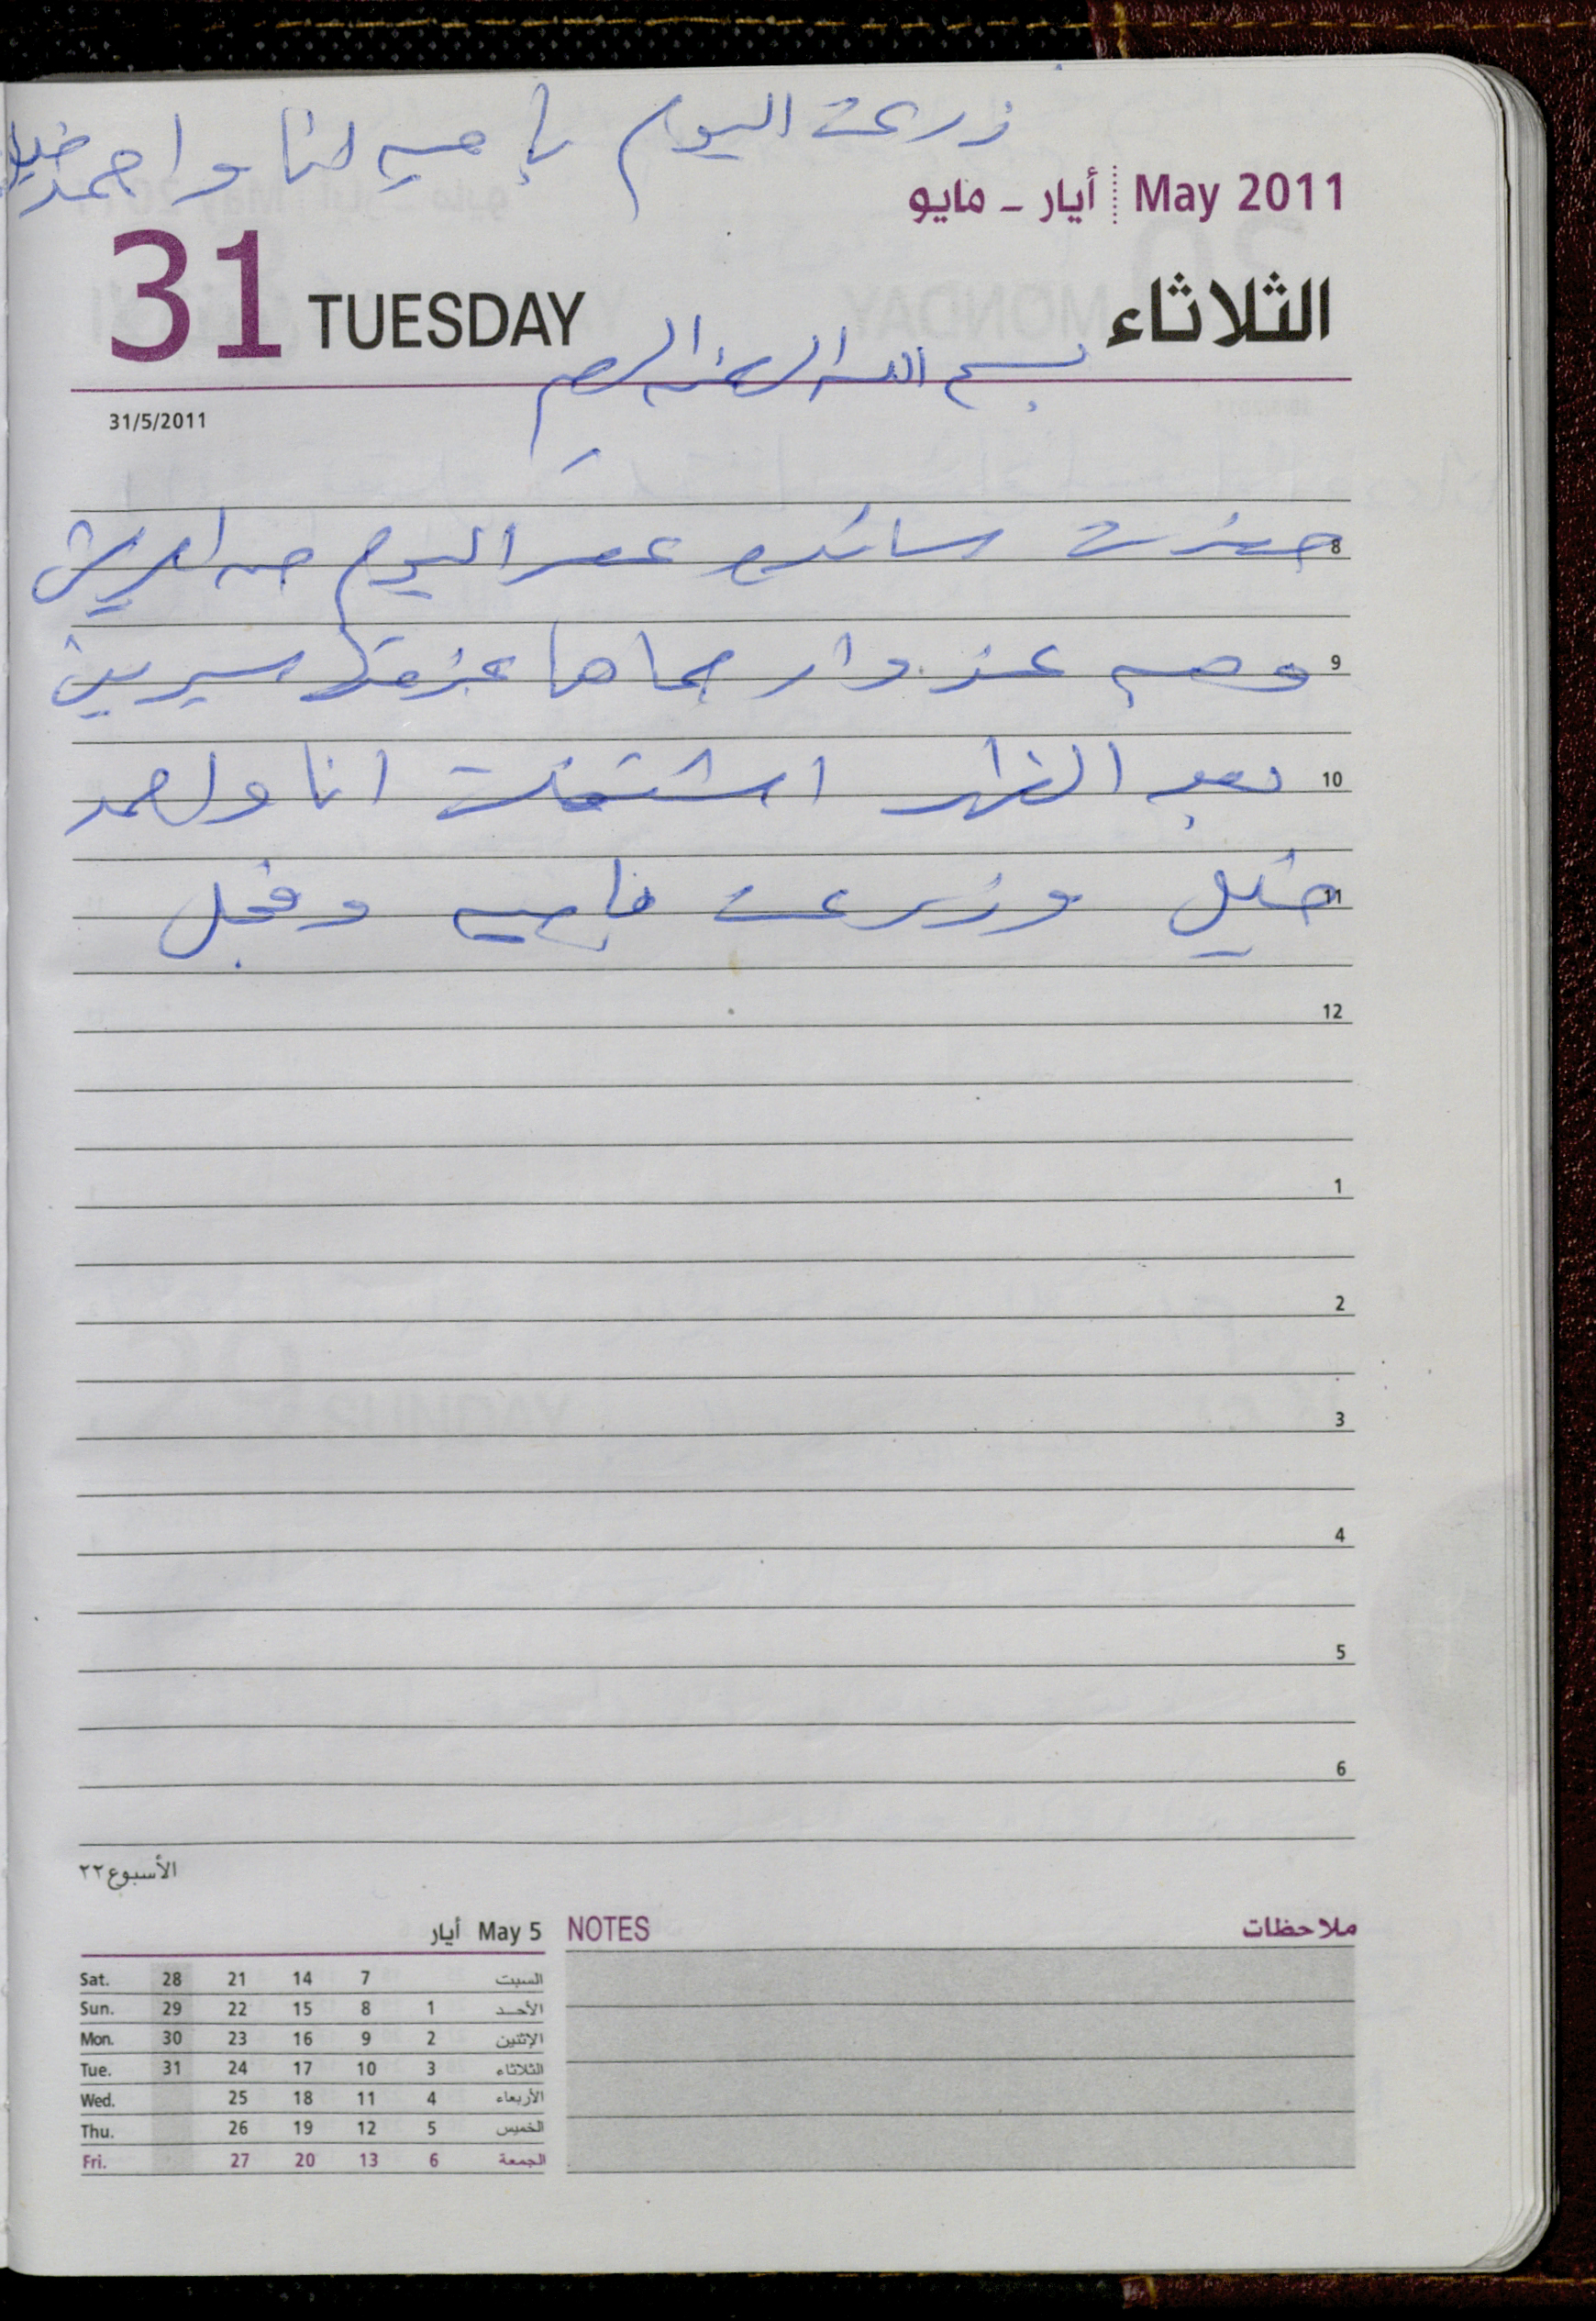 زرعت اليوم بامية لنا واحمد خليل
أيار - مايو May 2011
31 TUESDAY الثلاثاء
بسم الله الرحمن الرحيم
31/5/2011
حضرت ساندي عصر اليوم من العريش 8
وهي عند دار حماها عزمتها سيرين 9
بعد الظهر اشتغلت انا واحمد 10
خليل وزرعت بامية وفجل 11
12
1
2
3
4
5
6
الأسبوع ٢٢
أيار May 5
NOTES ملاحظات
Sat. 28 21 14 7 السبت
Sun. 29 22 15 8 1 الأحد
Mon. 30 23 16 9 2 الإثنين
Tue. 31 24 17 10 3 الثلاثاء
Wed. 25 18 11 4 الأربعاء
Thu. 26 19 12 5 الخميس
Fri. 27 20 13 6 الجمعة